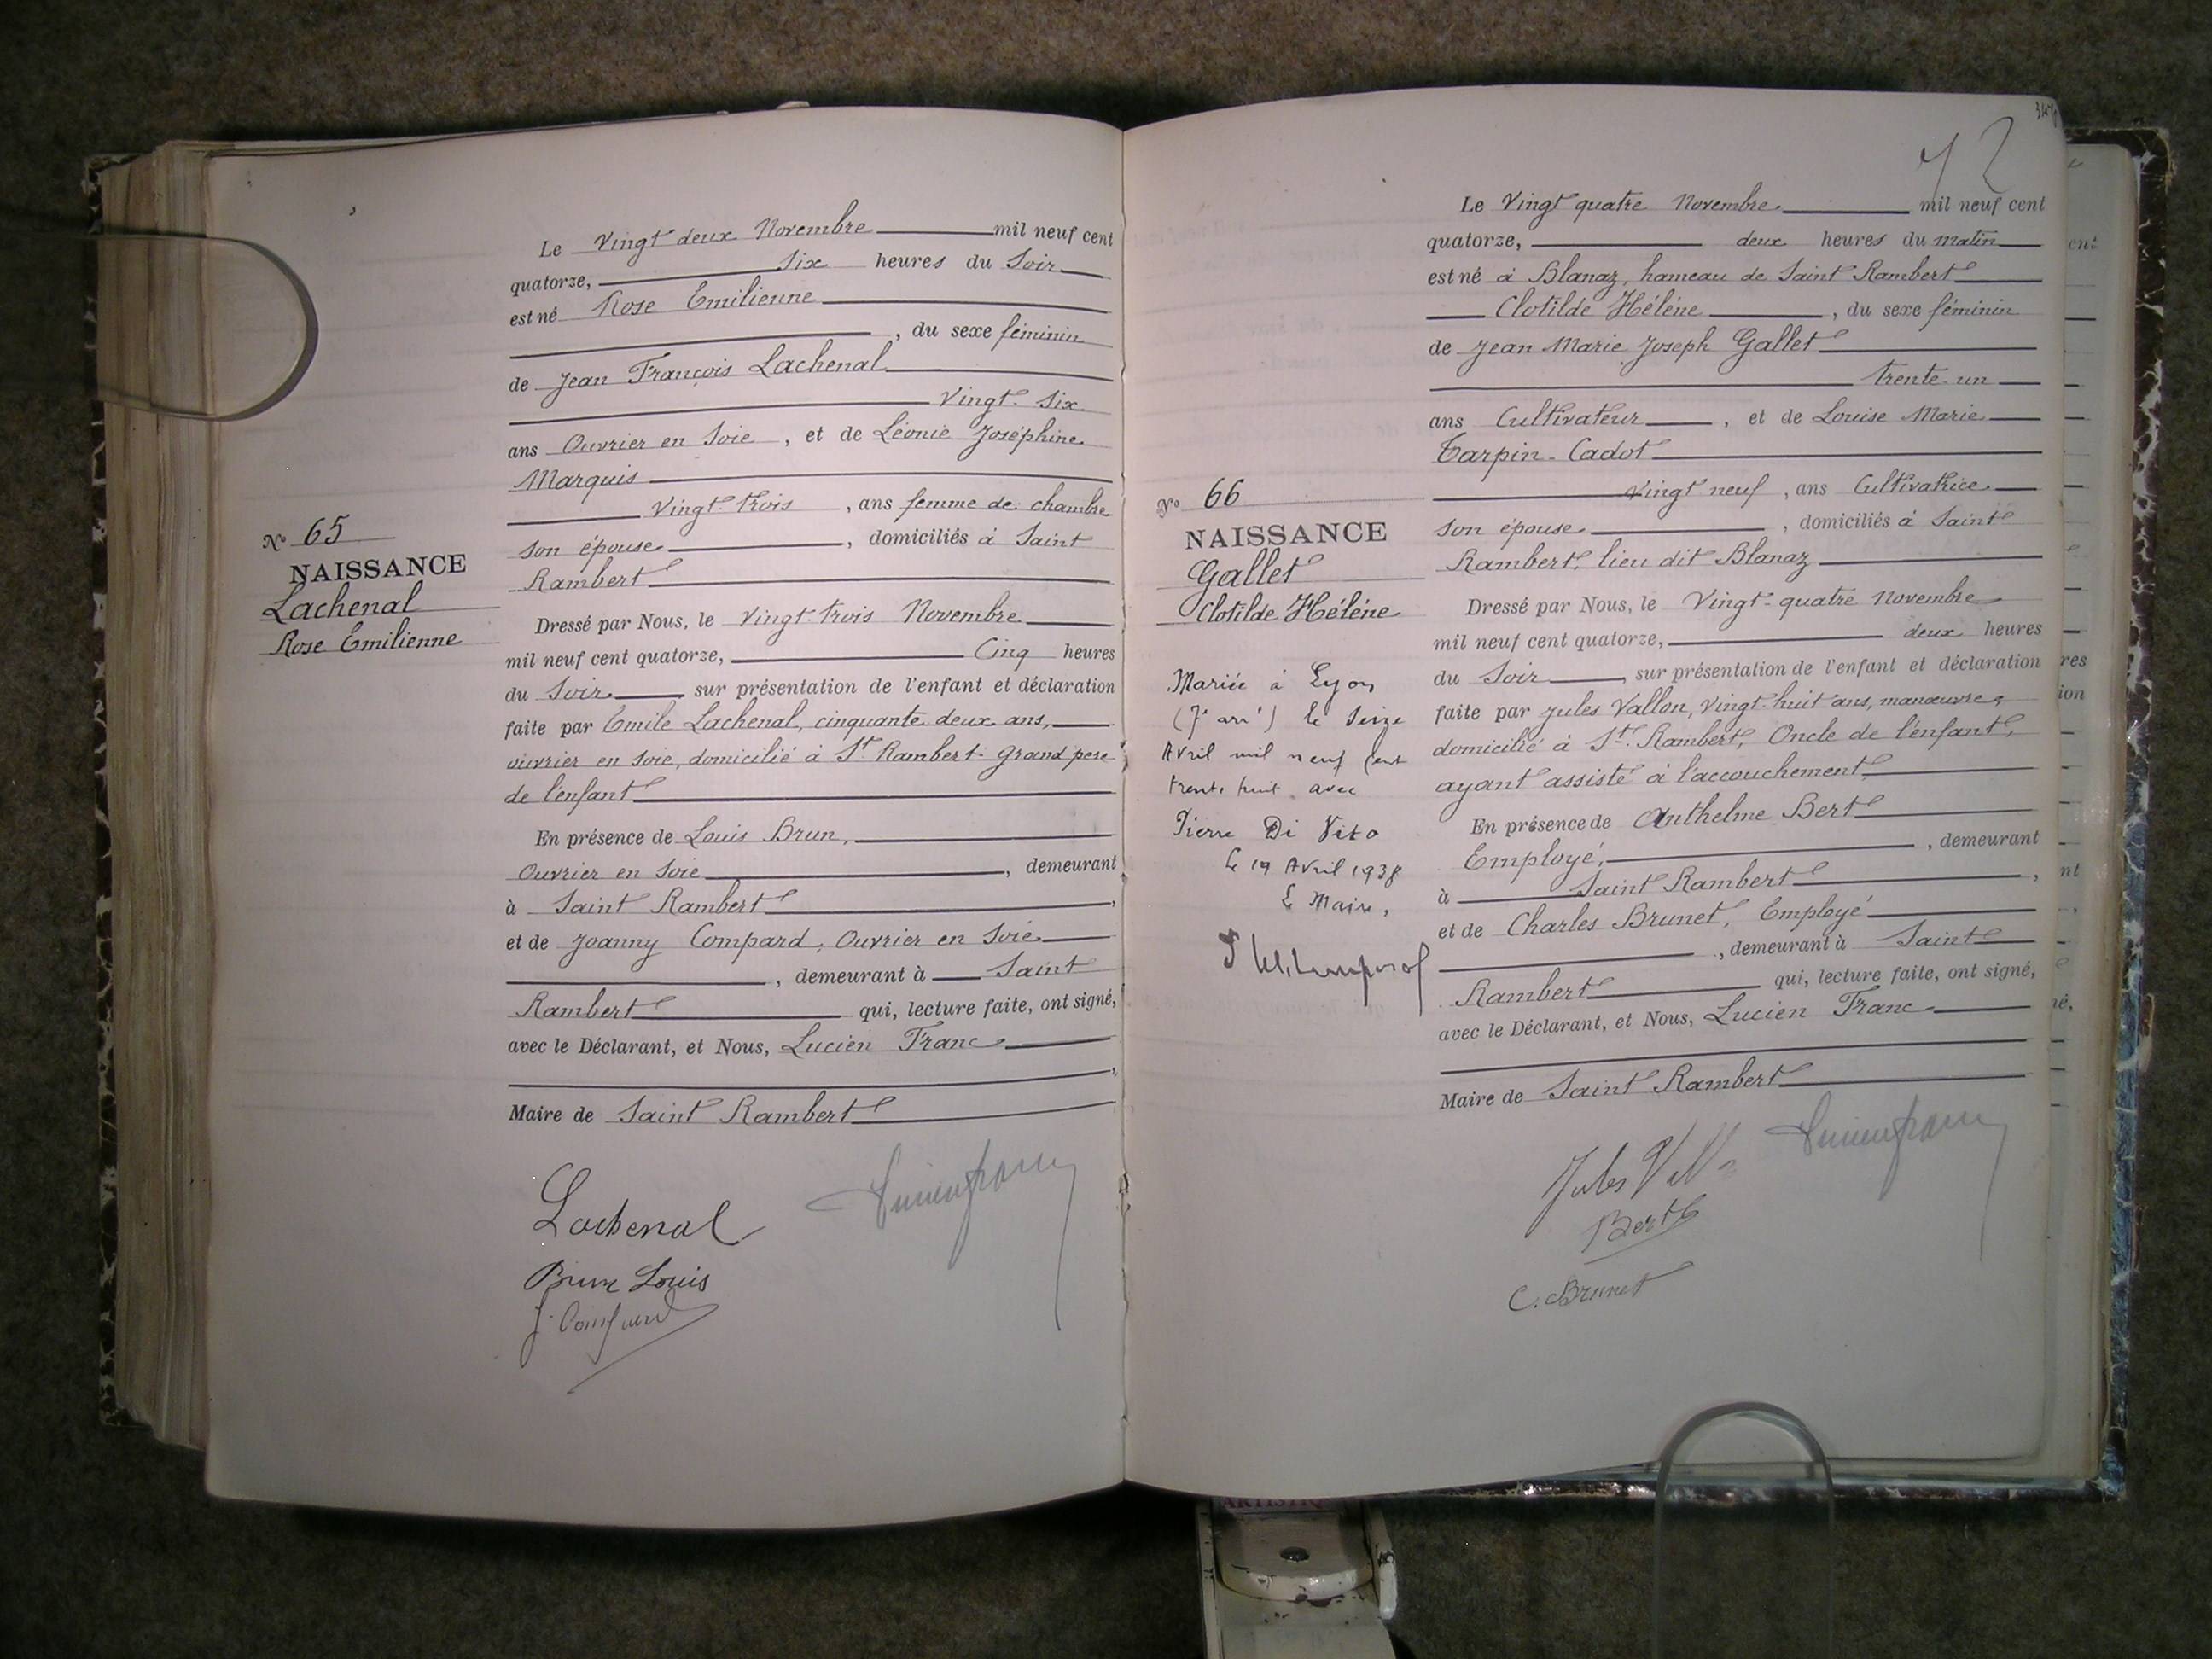 Le Vingt deux Novembre mil neuf cent
quatorze, Six heures du Soir
est né Rose Emilienne
, du sexe féminin
de Jean François Lachenal
Vingt-Six
ans Ouvrier en Soie, et de Léonie Joséphine
Marquis
Vingt-trois, ans femme de chambre
son épouse, domiciliés à Saint
Rambert
Nº 65
NAISSANCE
Lachenal
Rose Emilienne
Dressé par Nous, le Vingt-trois Novembre
mil neuf cent quatorze, Cinq heures
du Soir sur présentation de l'enfant et déclaration
faite par Emile Lachenal, cinquante deux ans,
ouvrier en soie, domicilié à St Rambert. Grand pere
de l'enfant
En présence de Louis Brun,
Ouvrier en Soie, demeurant
à Saint Rambert,
et de Joanny Compard, Ouvrier en Soie
, demeurant à Saint
Rambert qui, lecture faite, ont signé,
avec le Déclarant, et Nous, Lucien Franc
,
Maire de Saint Rambert
Lachenal
Brun Louis
J. Compard
72
Le Vingt quatre Novembre mil neuf cent
quatorze, deux heures du matin
est né à Blanaz, hameau de Saint Rambert
Clotilde Hélène, du sexe féminin
de Jean Marie Joseph Gallet
trente-un
ans Cultivateur, et de Louise Marie
Tarpin-Cadot
vingt neuf, ans Cultivatrice
son épouse, domiciliés à Saint
Rambert, lieu dit Blanaz
Nº 66
NAISSANCE
Gallet
Clotilde Hélène
Mariée à Lyon
(7e arrt) le Seize
Avril mil neuf cent
trente huit avec
Pierre Di Vito
Le 19 Avril 1938
Le Maire,
Dressé par Nous, le Vingt-quatre Novembre
mil neuf cent quatorze, deux heures
du Soir, sur présentation de l'enfant et déclaration
faite par Jules Vallon, Vingt-huit ans, manœuvre,
domicilié à St. Rambert, Oncle de l'enfant,
ayant assisté à l'accouchement
En présence de Anthelme Bert
Employé, demeurant
à Saint Rambert,
et de Charles Brunet, Employé
, demeurant à Saint
Rambert qui, lecture faite, ont signé,
avec le Déclarant, et Nous, Lucien Franc
Maire de Saint Rambert
Jules
Bert
C. Brunet